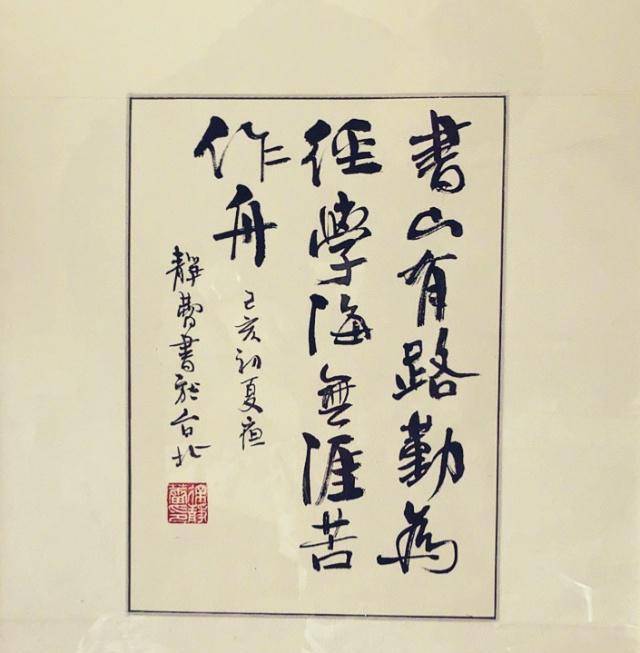 書山有路勤為
徑學海無涯苦
作舟
己亥初夏夜
靜蕾書於台北